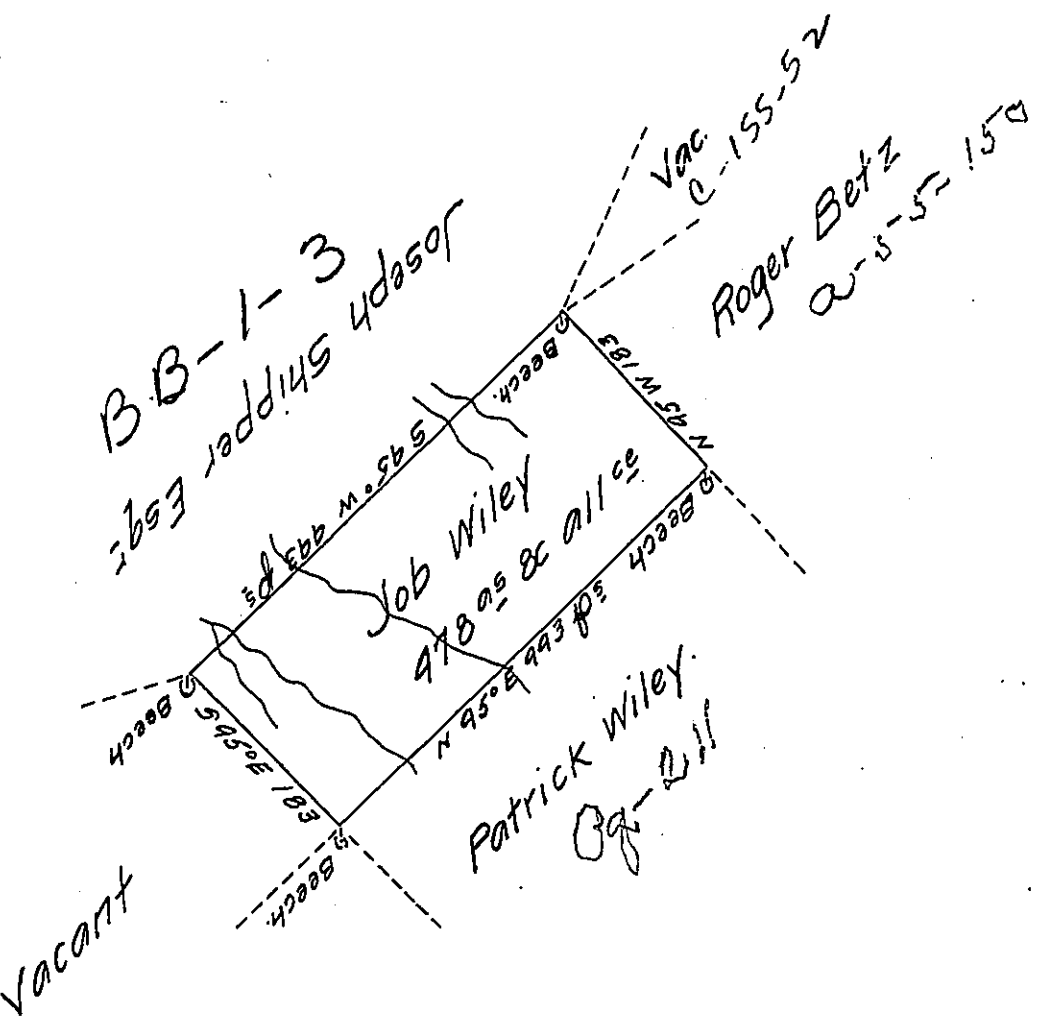 BB-1-3
Joseph Shipper Esqr
Vac.
C-155-52
Roger Betz
Beech.
N 45 W 183
S 45° W 443 ps
Job Wiley
478 as & all ce
Beech
N 45° E 443 ps
Beech
S 45° E 183
Beech.
Patrick Wiley.
Vacant